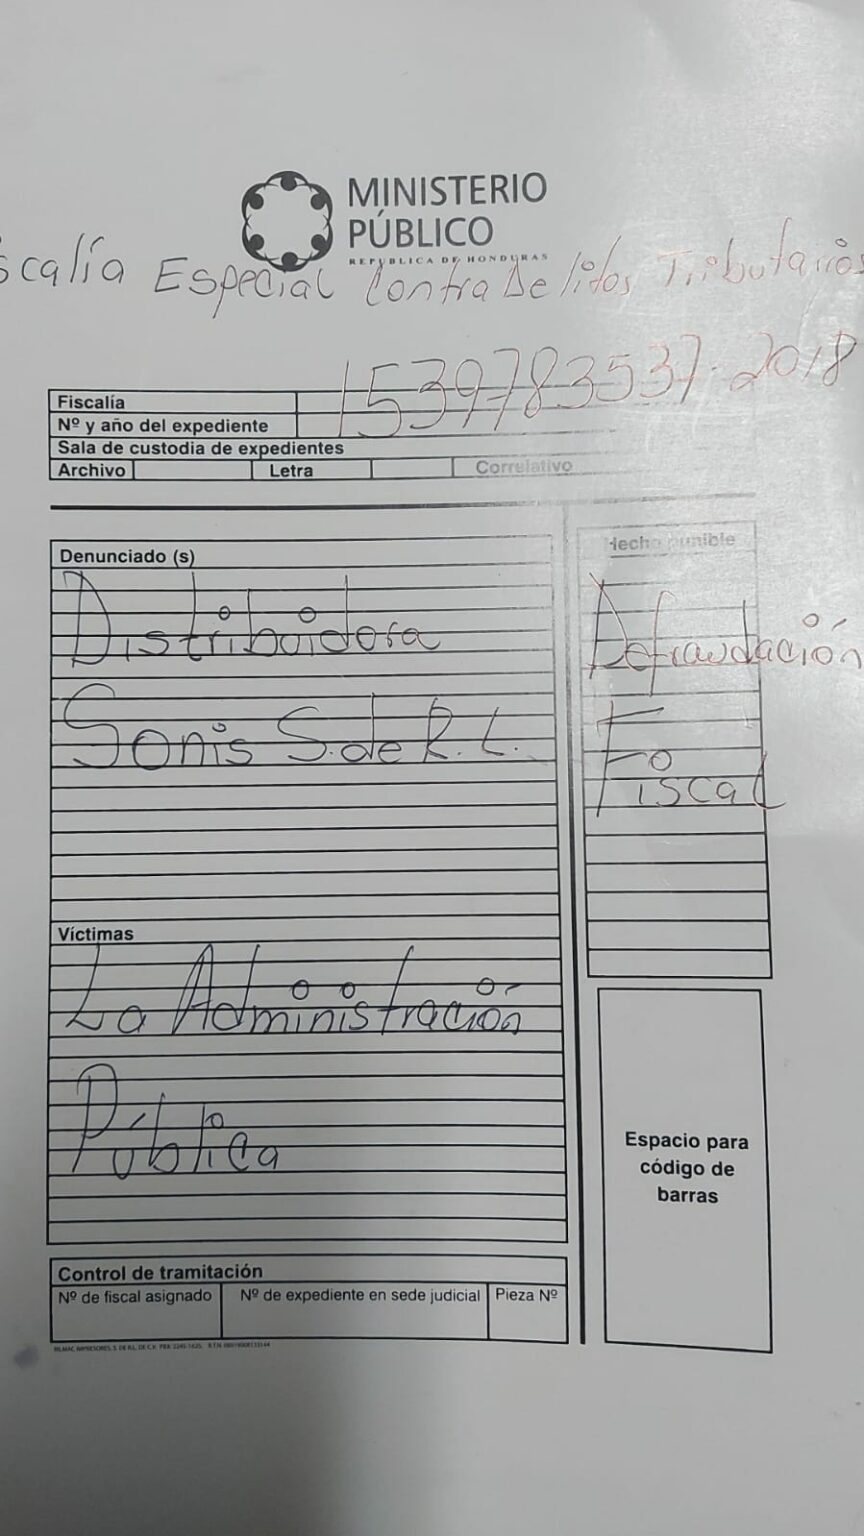 MINISTERIO
PÚBLICO
REPUBLICA DE HONDURAS
scalía Especial Contra Delitos Tributarios
1539783537-2018
Fiscalía
Nº y año del expediente
Sala de custodia de expedientes
Archivo Letra Correlativo
Denunciado (s)
Distribuidora
Sonis S. de R. L.
Hecho punible
Defraudación
Fiscal
Víctimas
La Administración
Pública
Espacio para
código de
barras
Control de tramitación
Nº de fiscal asignado Nº de expediente en sede judicial Pieza Nº